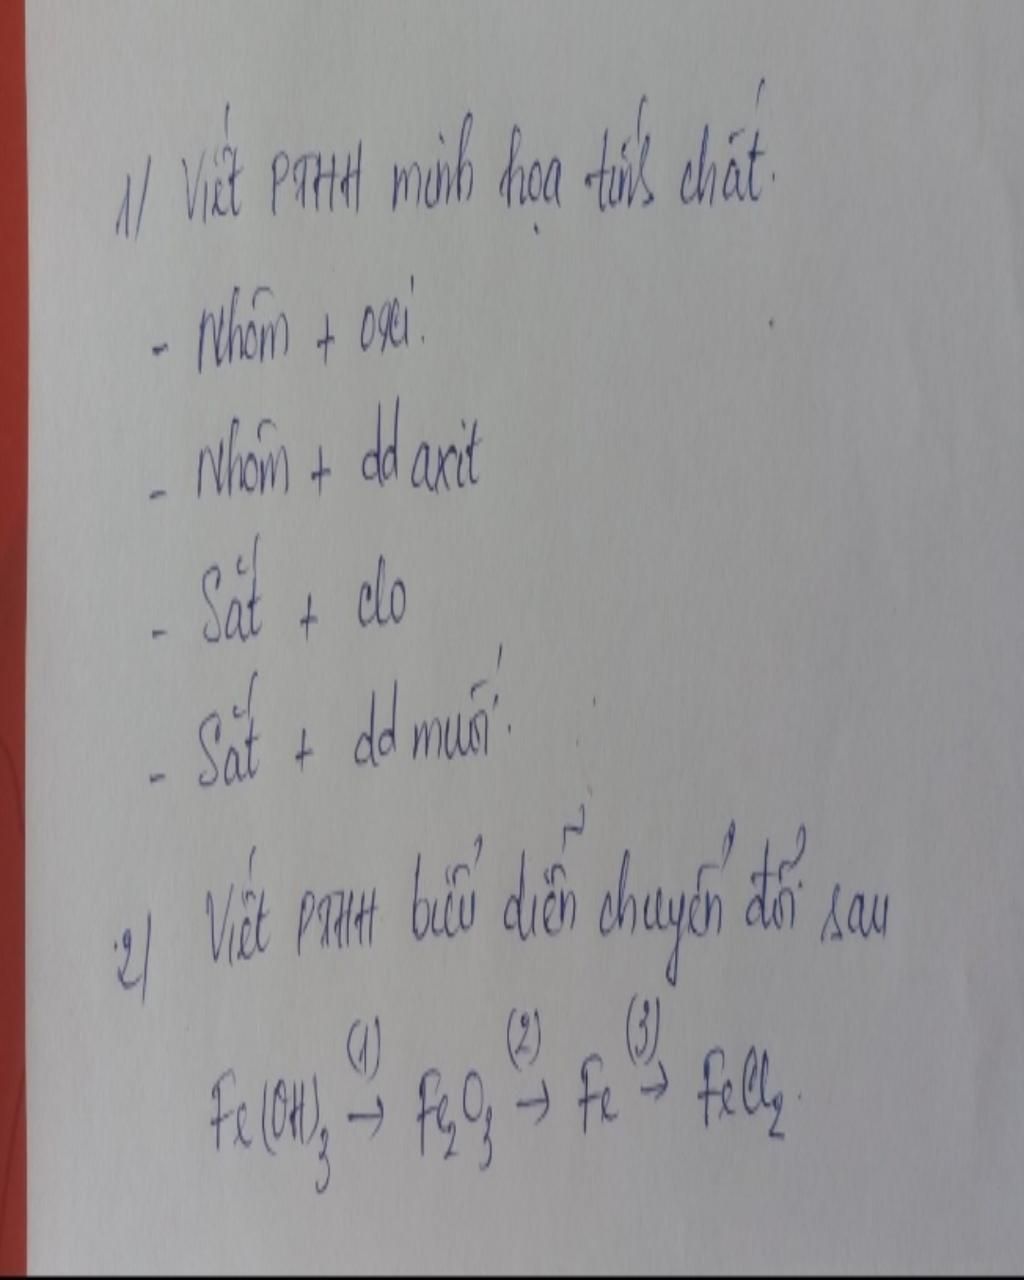 1/ Viết PTHH minh họa tính chất.
- Nhôm + oxi.
- Nhôm + dd axit
- Sắt + clo
- Sắt + dd muối.
2) Viết PTHH biểu diễn chuyển đổi sau
Fe(OH)₃ (1)→ Fe₂O₃ (2)→ Fe (3)→ FeCl₂.